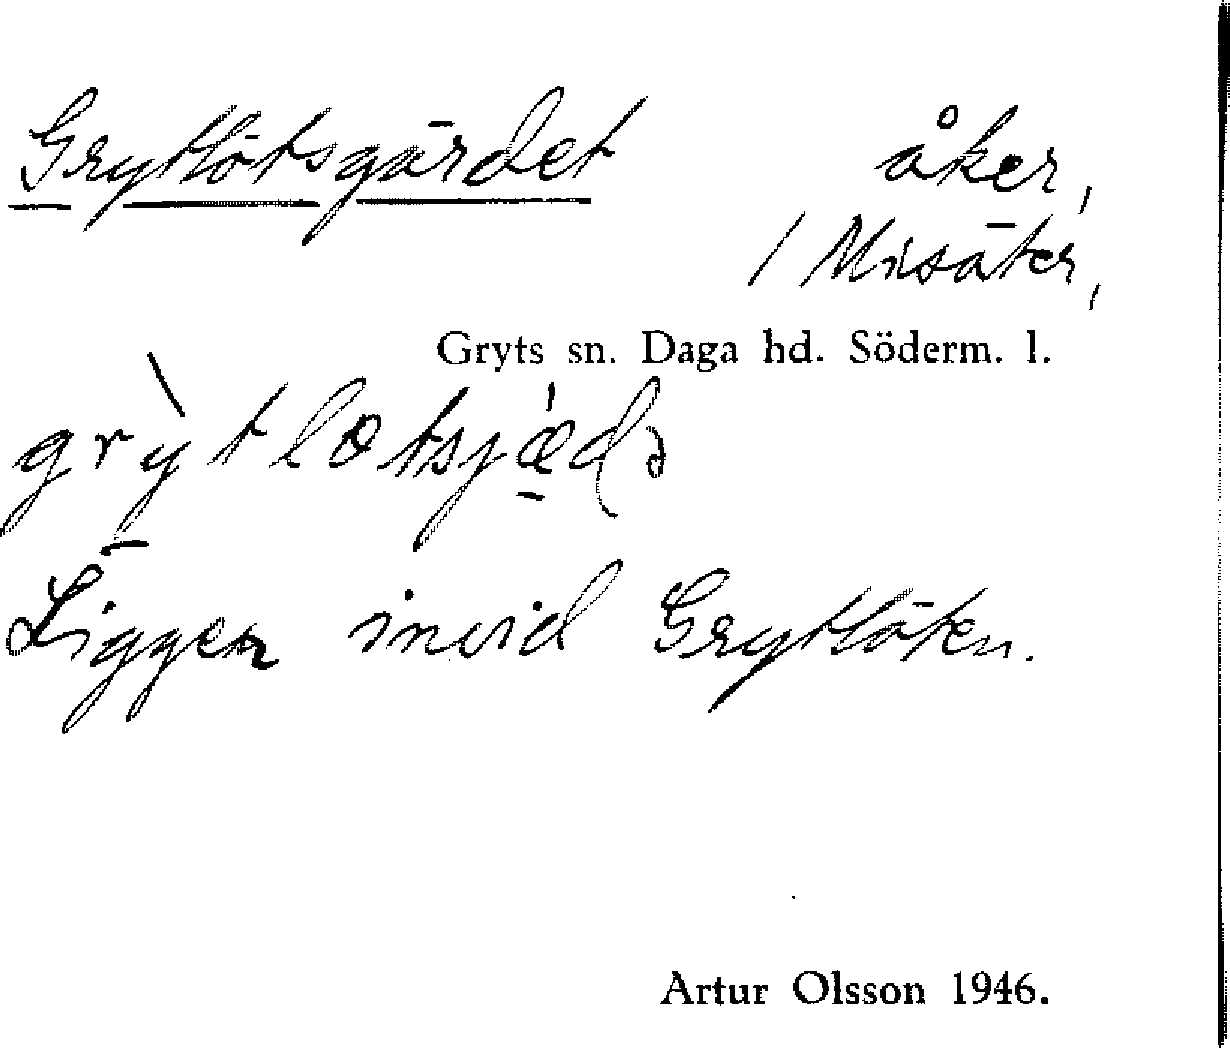 Grytlötsgärdet åker,
/ Misäter,
Gryts sn. Daga hd. Söderm. l.
grỳtløtsjæ̀də
Ligger invid Grytlöten.
Artur Olsson 1946.